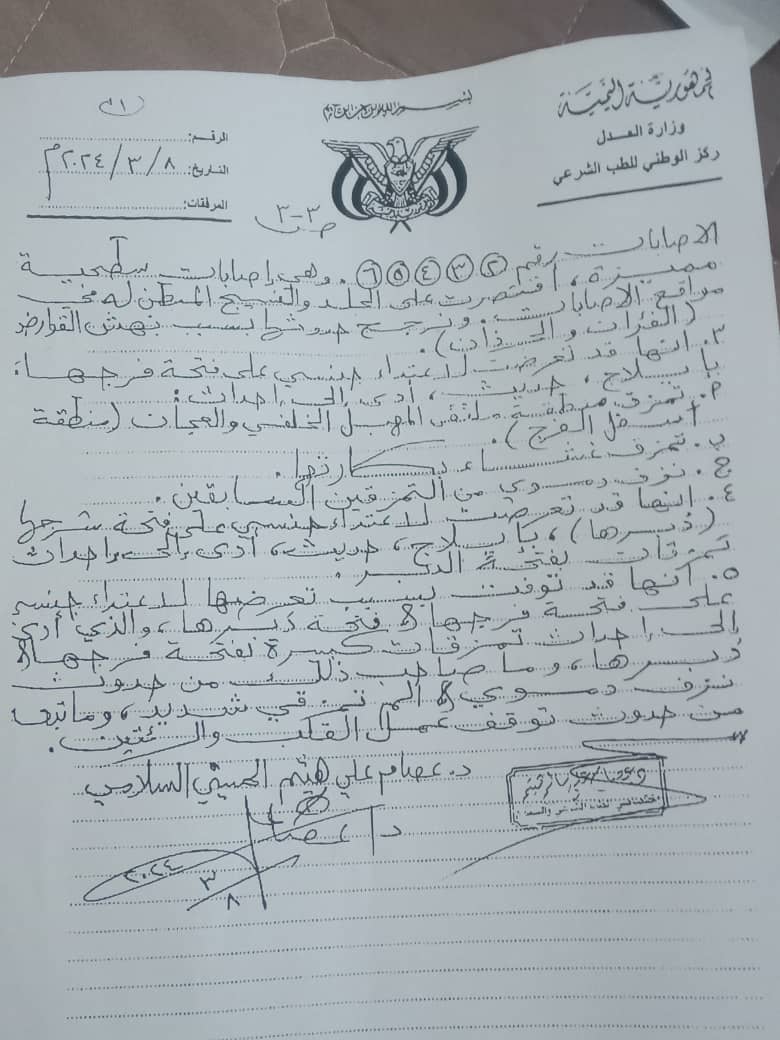 الجمهورية اليمنية
وزارة العدل
ركز الوطني للطب الشرعي
بسم الله الرحمن الرحيم
(٢١)
الرقم:
التاريخ: ٢٠٢٤/٣/٨م
المرفقات:
ص ٣-٣
الاصابات رقم ٢ ٣ ٤ ٥ ٦. وهي إصابات سطحية
مميزة، اقتصرت على الجلد والنسيج المبطن له في
مواقع الاصابات. ونرجح حدوثها بسبب نهش القوارض
(الفئران والجرذان).
٣. انها قد تعرضت لاعتداء جنسي على فتحة فرجها،
بإيلاج، حديث، أدى إلى إحداث:
٢. تمزق منطقة ملتقى المهبل الخلفي والعجان (منطقة
أسفل الفرج).
ب. تمزق غشاء بكارتها.
ج. نزف دموي من التمزقين السابقين.
٤. انها قد تعرضت لاعتداء جنسي على فتحة شرجها
(دبرها)، بإيلاج، حديث، أدى إلى إحداث
تمزقات بفتحة الدبر.
٥. أنها قد توفت بسبب تعرضها لاعتداء جنسي
على فتحة فرجها & فتحة دبرها، والذي أدى
إلى إحداث تمزقات كبيرة لفتحة فرجها &
دبرها، وما صاحب ذلك من حدوث
نزف دموي & الم تمزقي شديد، وما تبعه
من حدوث توقف عمل القلب والرئتين.
د. عصام علي هيثم الحسيني السلامي
د/ عصام
٢٠٢٤
٣
٨